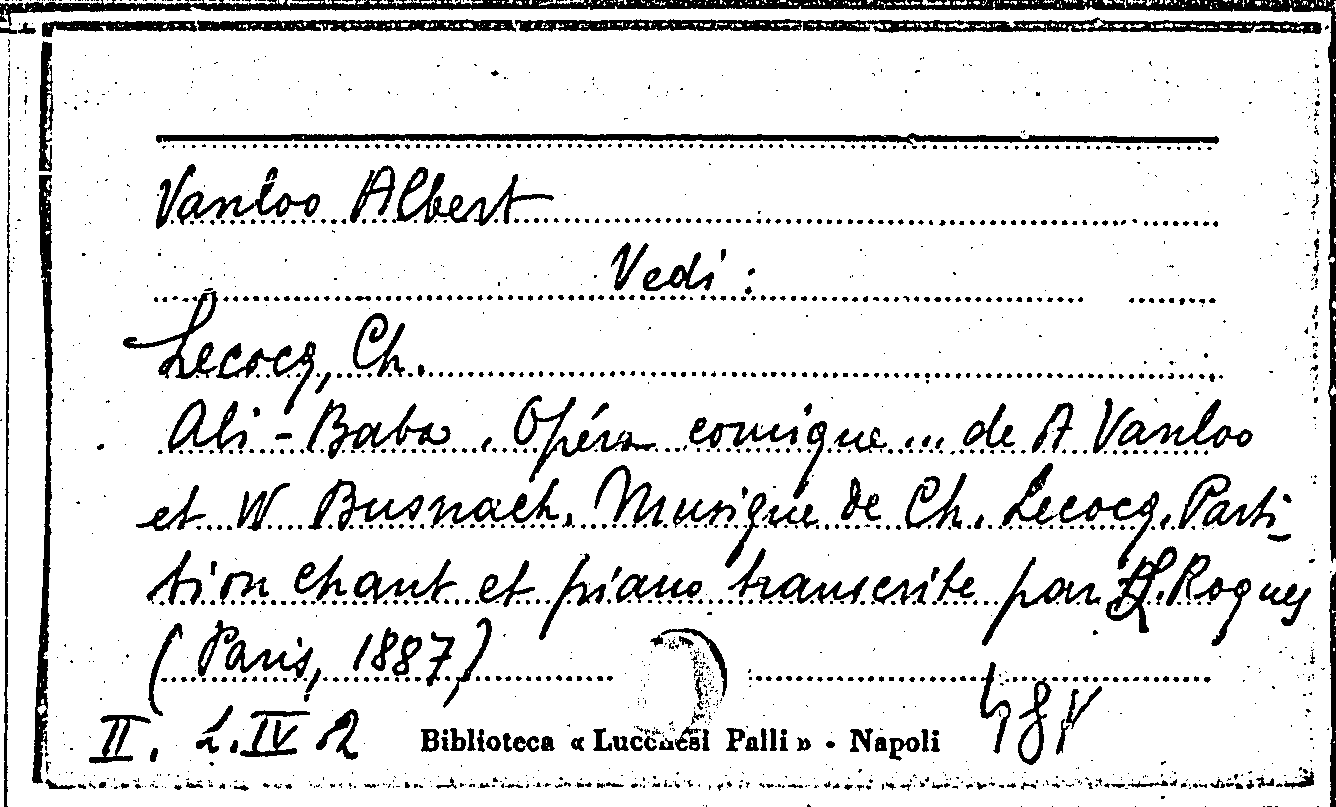 Vanloo Albert
Vedi :
Lecocq, Ch.
Ali-Baba. Opéra comique... de A Vanloo
et W Busnach. Musique de Ch. Lecocq. Parti-
tion chant et piano transcrite par L. Roques
(Paris, 1887)
II. L. IV 2
Biblioteca « Lucchesi Palli » - Napoli